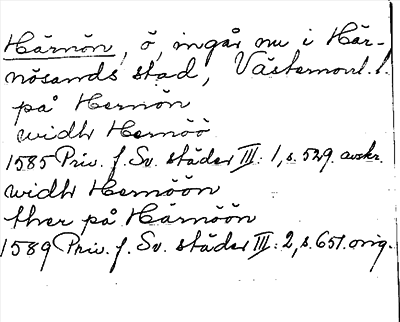 Härnön, ö, ingår nu i Här-
nösands stad, Västernorrl. l.
på Hernön
widh Hernöö
1585 Priv. f. Sv. städer III: 1, s. 529. avskr.
widh Hernöön
ther på Härnöön
1589 Priv. f. Sv. städer III: 2, s. 651. orig.